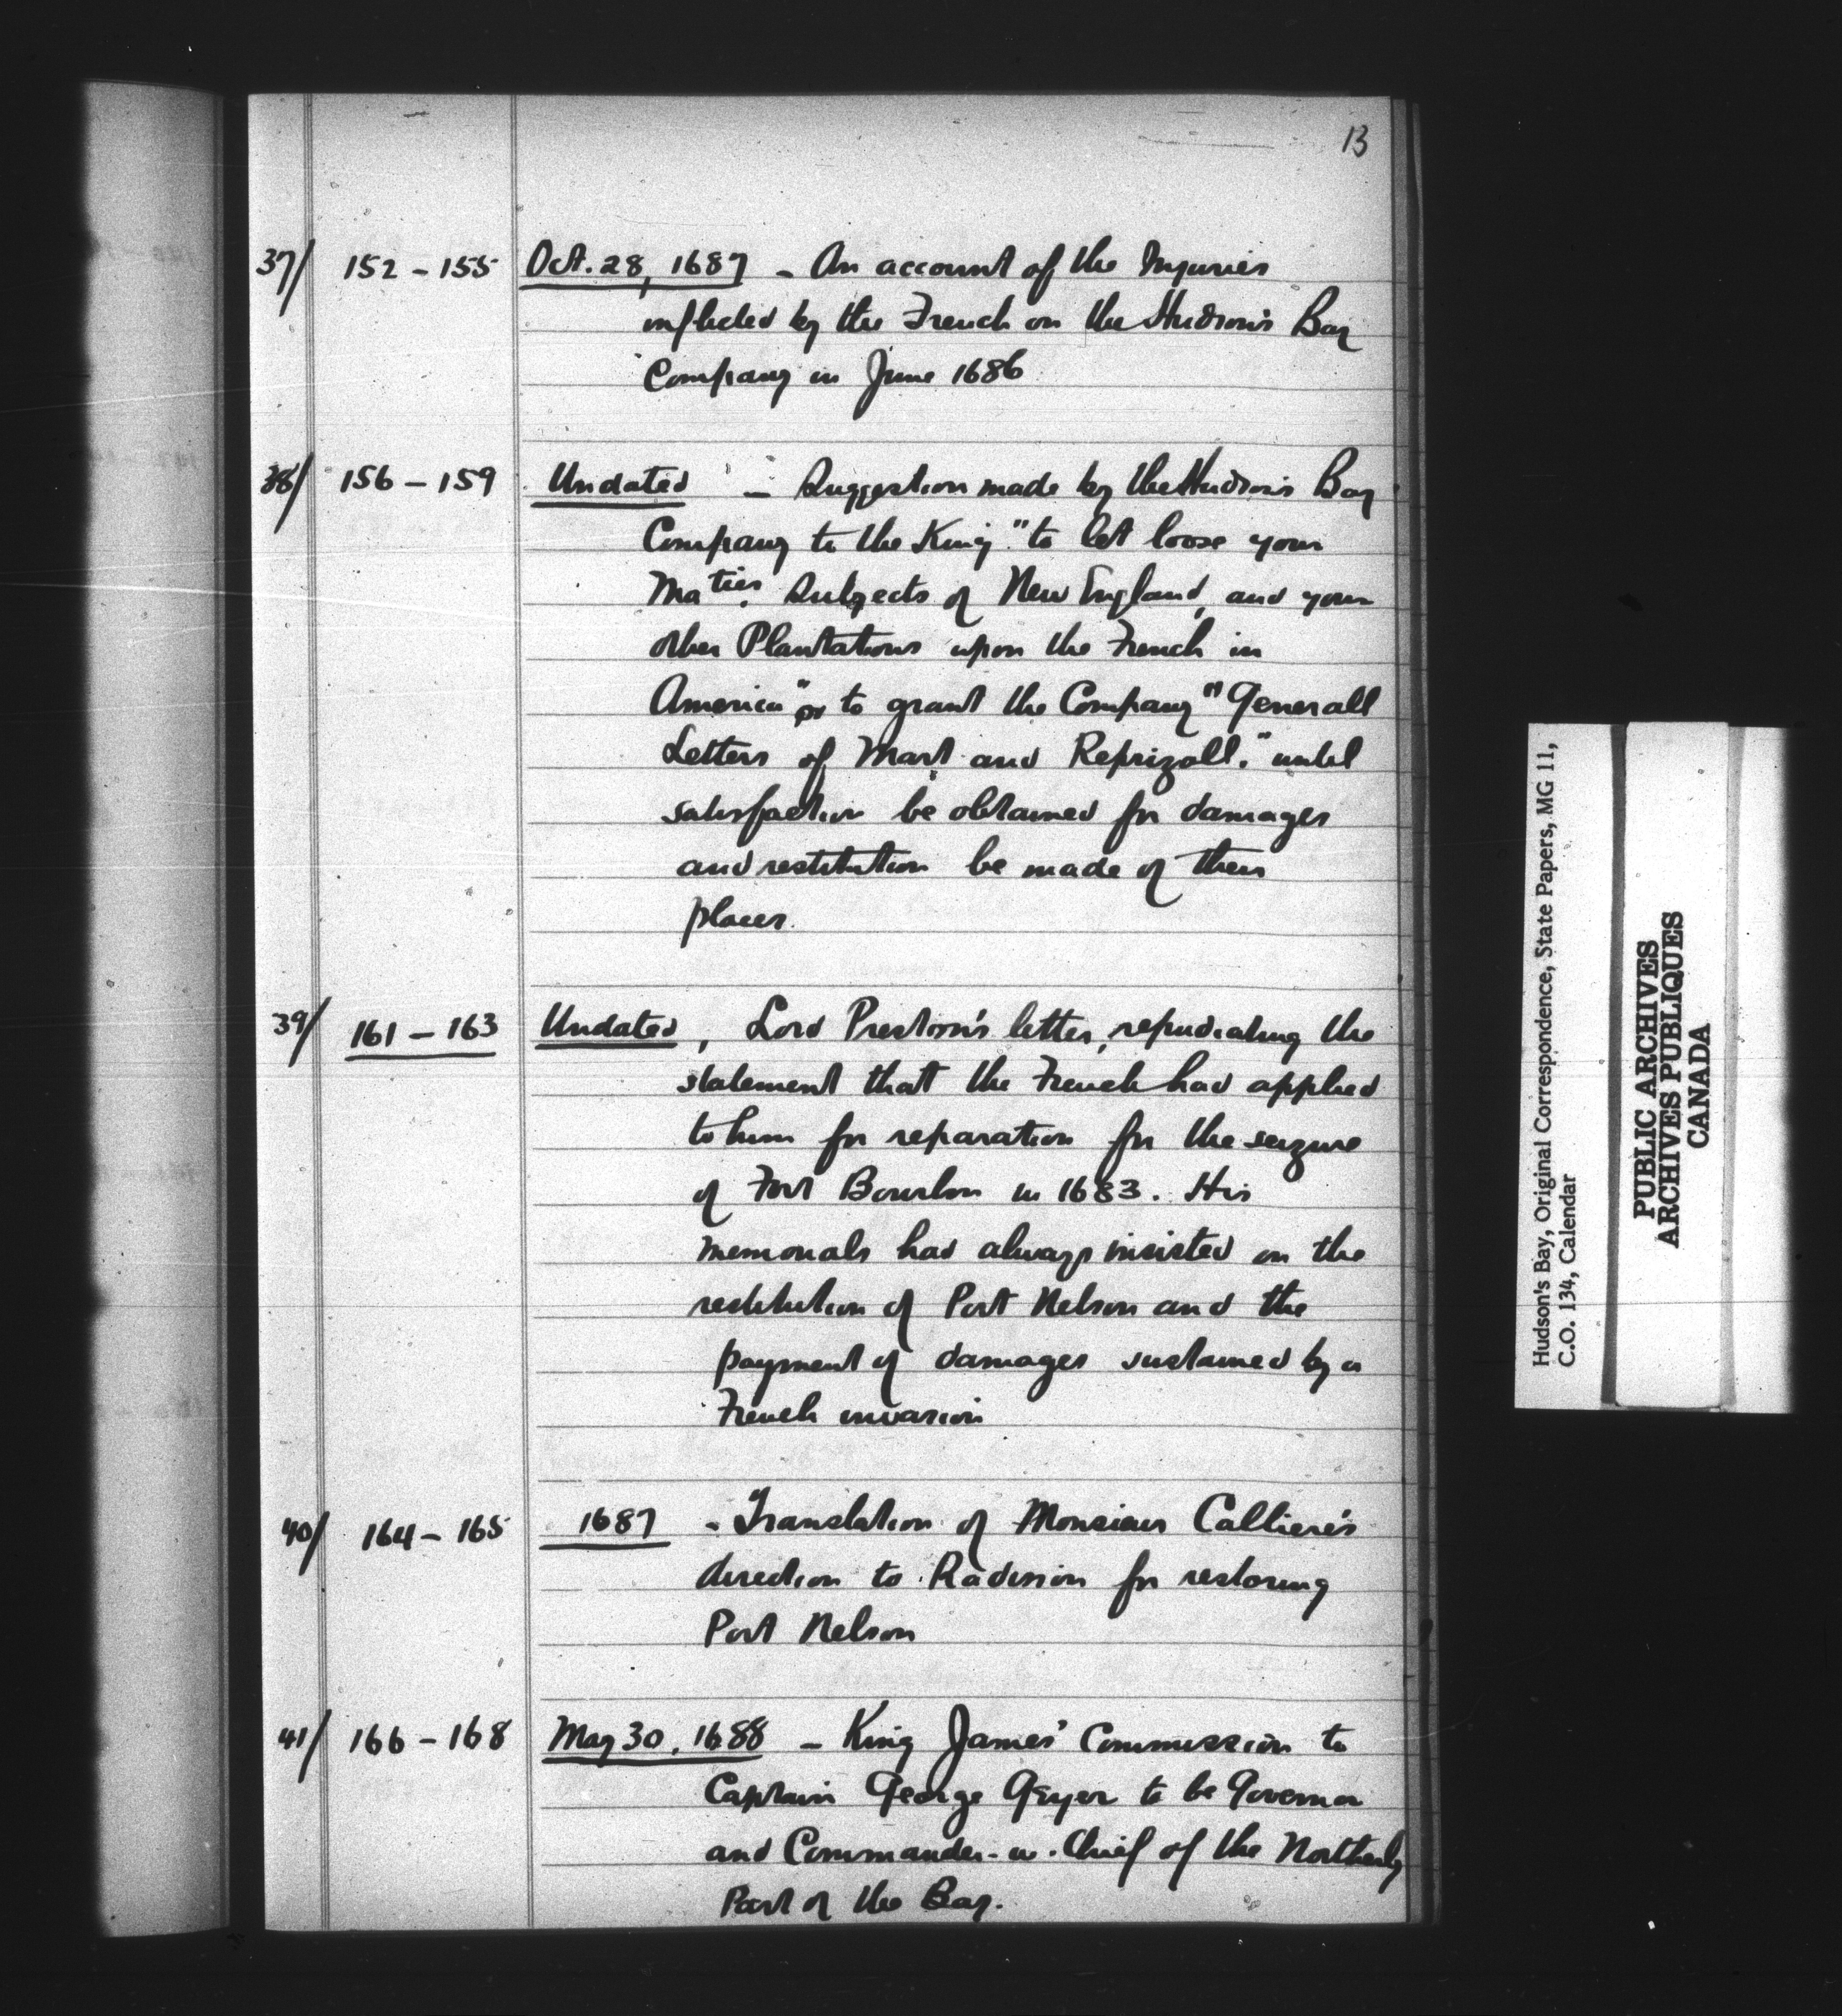 13
37/ 152 - 155 Oct. 28, 1687 - An account of the Injuries
inflicted by the French on the Hudson's Bay
Company in June 1686
38/ 156 - 159 Undated - Suggestion made by the Hudson's Bay
Company to the King "to let loose your
Maties. Subjects of New England, and your
other Plantations upon the French in
America" or to grant the Company "Generall
Letters of Mart and Reprizall." until
satisfaction be obtained for damages
and restitution be made of their
places.
39/ 161 - 163 Undated, Lord Preston's letter, repudiating the
statement that the French had applied
to him for reparation for the seizure
of Fort Bourbon in 1683. His
memorials had always insisted on the
restitution of Port Nelson and the
payment of damages sustained by a
French invasion
40/ 164 - 165 1687 - Translation of Monsieur Calliere's
direction to Radisson for restoring
Port Nelson
41/ 166 - 168 May 30, 1688 - King James' Commission to
Captain George Geyer to be Governor
and Commander-in-Chief of the Northerly
Part of the Bay.
Hudson's Bay, Original Correspondence, State Papers, MG 11,
C.O. 134, Calendar
PUBLIC ARCHIVES
ARCHIVES PUBLIQUES
CANADA